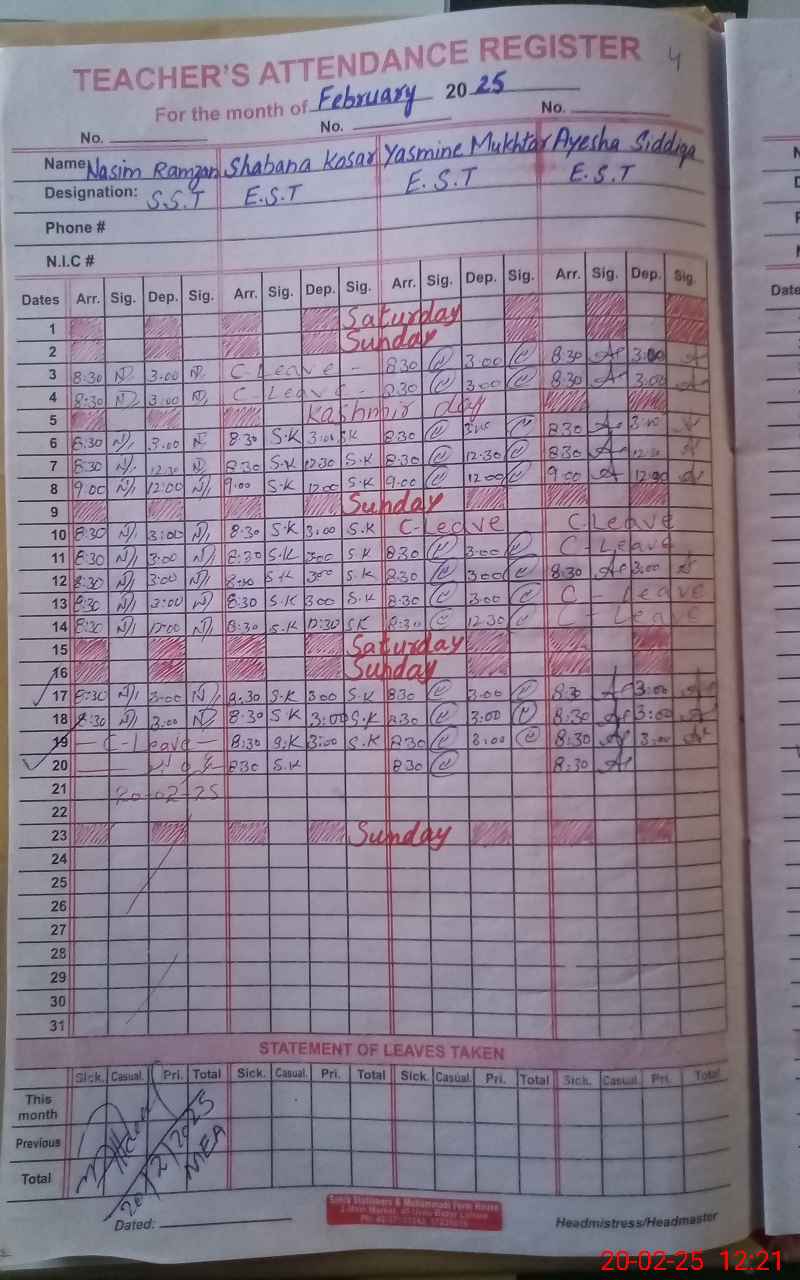 4
TEACHER'S ATTENDANCE REGISTER
For the month of February 2025
No. No. No.
Name Nasim Ramzan Shabana Kosar Yasmine Mukhtar Ayesha Siddiqa
Designation: S.S.T E.S.T E.S.T E.S.T
Phone #
N.I.C #
Dates Arr. Sig. Dep. Sig. Arr. Sig. Dep. Sig. Arr. Sig. Dep. Sig. Arr. Sig. Dep. Sig.
1 Saturday
2 Sunday
3 8:30 3:00 C-Leave - 8:30 3:00 8:30 3:00
4 8:30 3:00 C-Leave - 8:30 3:00 8:30 3:00
5 Kashmir day
6 8:30 3:00 8:30 S.K 3:00 S.K 8:30 3:00 8:30 3:00
7 8:30 12:30 8:30 S.K 12:30 S.K 8:30 12:30 8:30 12:30
8 9:00 12:00 9:00 S.K 12:00 S.K 9:00 12:00 9:00 12:00
9 Sunday
10 8:30 3:00 8:30 S.K 3:00 S.K C-Leave C-Leave
11 8:30 3:00 8:30 S.K 3:00 S.K 8:30 3:00 C-Leave
12 8:30 3:00 8:30 S.K 3:00 S.K 8:30 3:00 8:30 3:00
13 8:30 3:00 8:30 S.K 3:00 S.K 8:30 3:00 C-Leave
14 8:30 12:00 8:30 S.K 12:30 S.K 8:30 12:30 C-Leave
15 Saturday
16 Sunday
17 8:30 3:00 8:30 S.K 3:00 S.K 8:30 3:00 8:30 3:00
18 8:30 3:00 8:30 S.K 3:00 S.K 8:30 3:00 8:30 3:00
19 - C-Leave - 8:30 S.K 3:00 S.K 8:30 3:00 8:30 3:00
20 8:30 S.K 8:30 8:30
21 20-02-25
22
23 Sunday
24
25
26
27
28
29
30
31
STATEMENT OF LEAVES TAKEN
Sick. Casual. Pri. Total Sick. Casual. Pri. Total Sick. Casual. Pri. Total Sick. Casual. Pri. Total
This month
Previous
Total
20/2/2025
MEA
Dated:
Headmistress/Headmaster
20-02-25 12:21